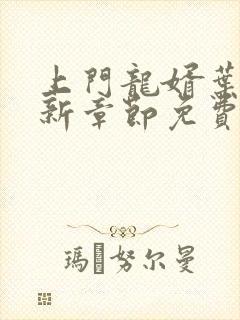 上門龍婿葉
新章節免費
瑪努尔曼